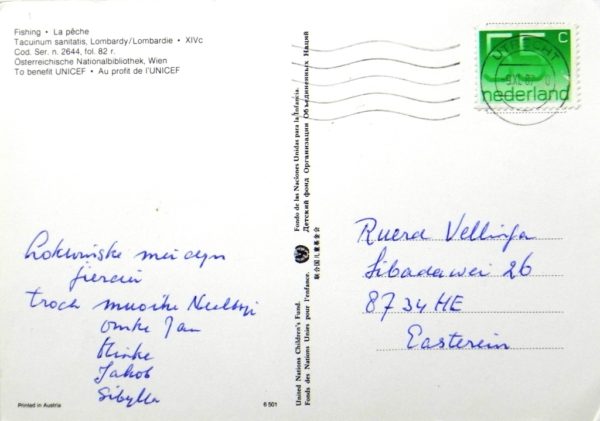 Fishing • La pêche
Tacuinum sanitatis, Lombardy/Lombardie • XIVc
Cod. Ser. n. 2644, fol. 82 r.
Österreichische Nationalbibliothek, Wien
To benefit UNICEF • Au profit de l'UNICEF
UTRECHT
C
nederland
Fondo de las Naciones Unidas para la Infancia.
Детский фонд Организации Объединенных Наций
联合国儿童基金会
United Nations Children's Fund.
Fonds des Nations Unies pour l'enfance.
Lokwinske mei dyn
jierdei
troch muoike
omke Jan
Hinke
Jakob
Sibylla
Ruerd Vellinga
Sibadawei 26
8734 HE
Easterein
Printed in Austria
6 501